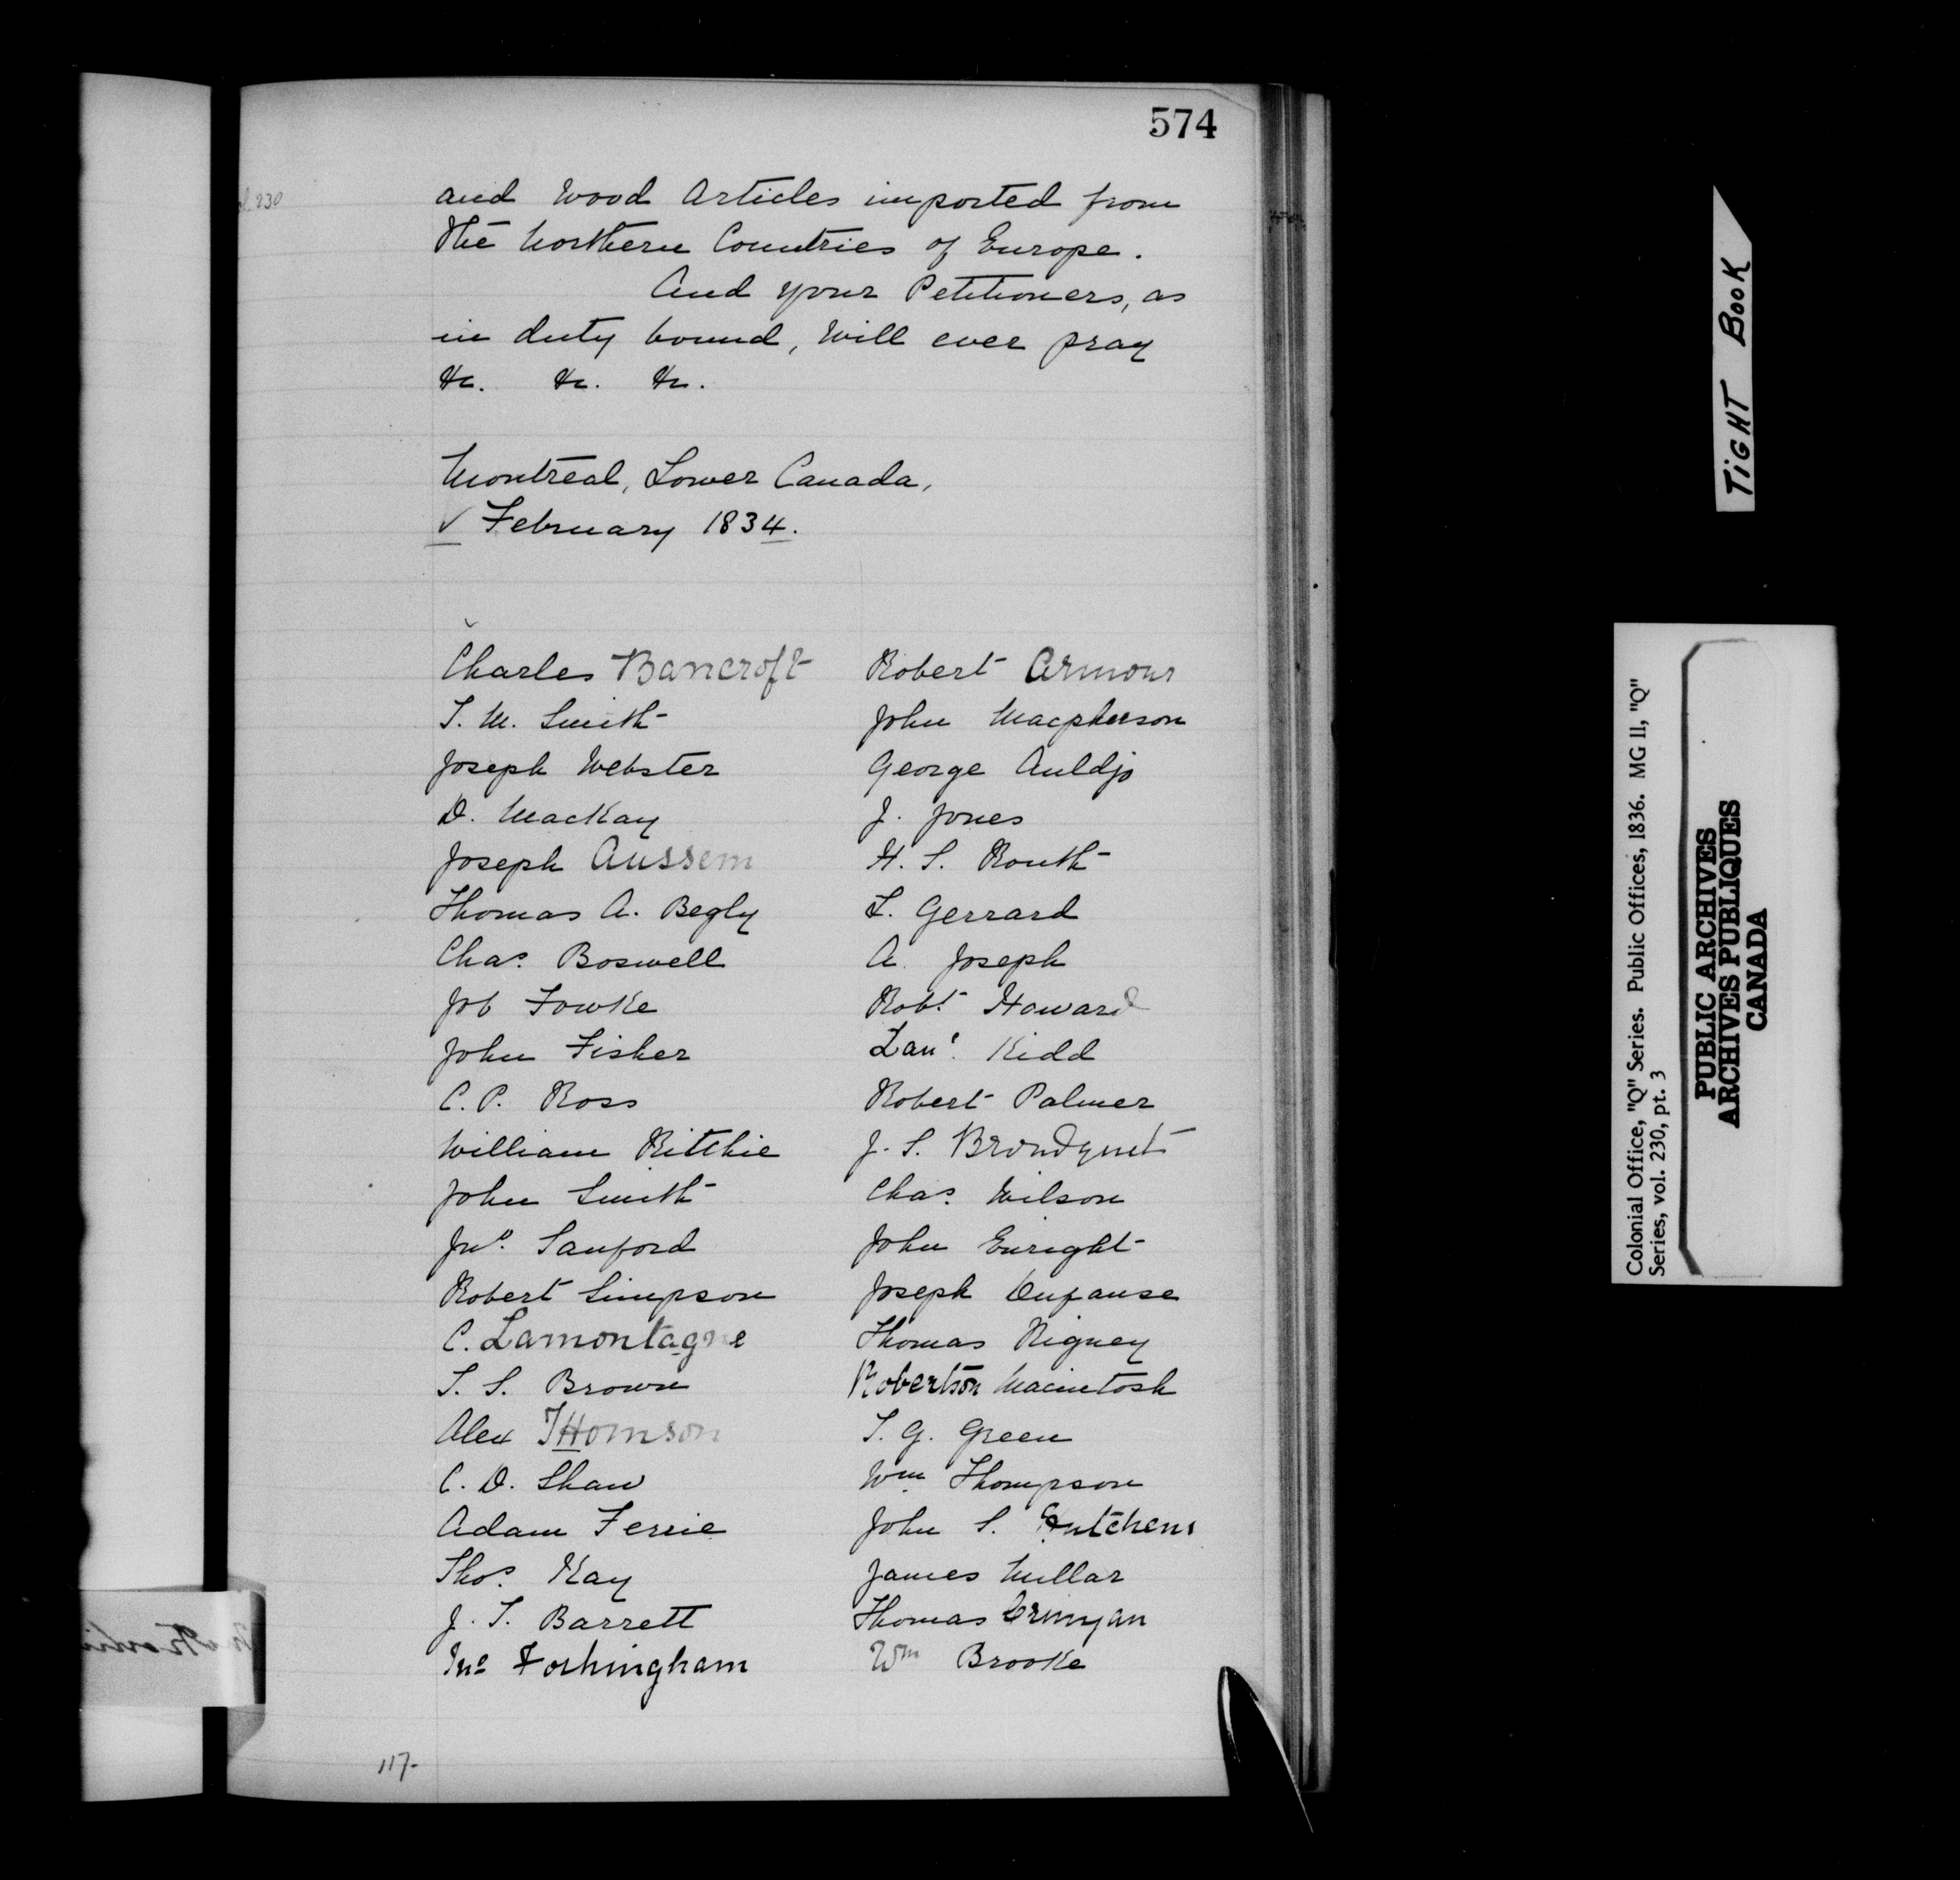 574
and Wood Articles imported from
the Northern Countries of Europe.
And your Petitioners, as
in duty bound, will ever pray
&c. &c. &c.
Montreal, Lower Canada,
✓ February 1834.
Charles Bancroft
T. M. Smith
Joseph Webster
D. MacKay
Joseph Aussem
Thomas A. Begly
Chas. Boswell
Job Fowke
John Fisher
C. P. Ross
William Ritchie
John Smith
Jno. Sanford
Robert Simpson
C. Lamontagne
T. S. Brown
Alex THomson
C. D. Shaw
Adam Ferrie
Thos. Kay
J. T. Barrett
Jno Fothingham
Robert Armour
John Macpherson
George Auldjo
J. Jones
H. S. Routh
S. Gerrard
A. Joseph
Robt. Howard
Kidd
Robert Palmer
J. S.
Chas. Wilson
John Enright
Joseph
Thomas Rigney
Robertson Macintosh
T. G. Green
Wm. Thompson
John S. Hutchens
James Millar
Thomas
Wm Brooke
117-
TIGHT BOOK
Colonial Office, "Q" Series. Public Offices, 1836. MG 11, "Q"
Series, vol. 230, pt. 3
PUBLIC ARCHIVES
ARCHIVES PUBLIQUES
CANADA